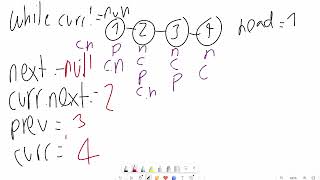 while curr != null
1 2 3 4
head = 1
c n n n n
p c c c
c n p p
p
c n
next = null
curr.next = 2
prev = 3
curr = 4